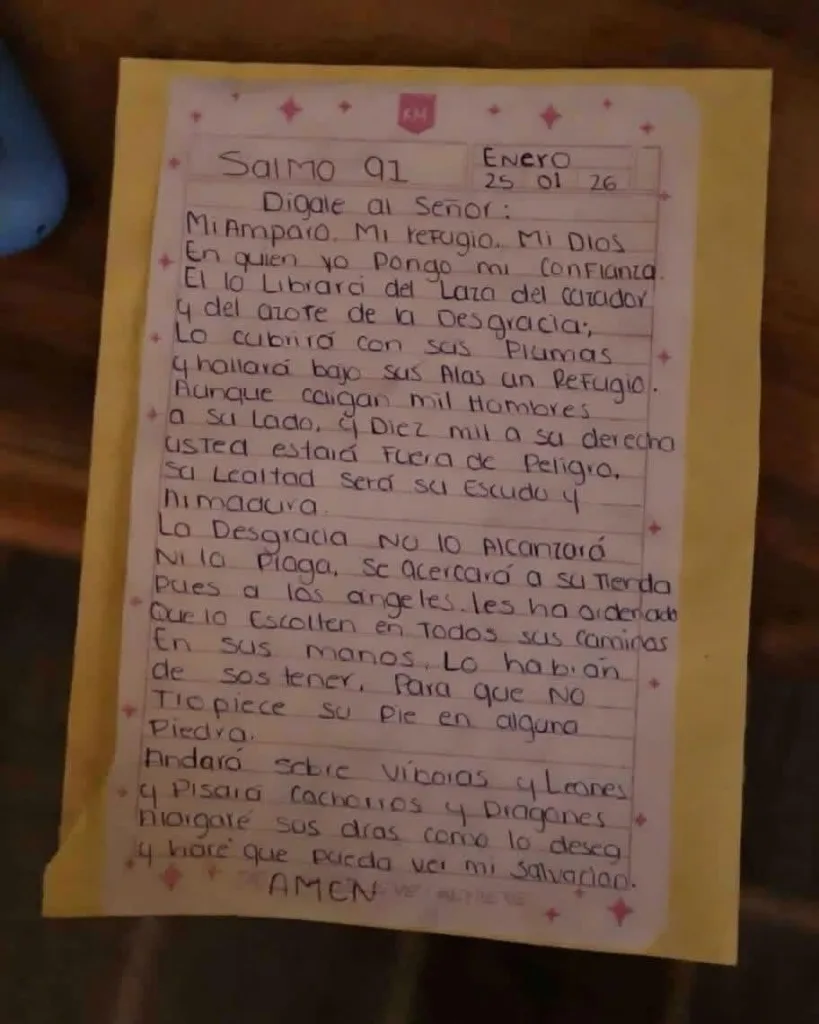 KM
Salmo 91
Enero
25 01 26
Digale al Señor:
Mi Amparo. Mi refugio. Mi Dios
En quien yo pongo mi confianza.
El lo Librará del Lazo del cazador
y del azote de la Desgracia;
Lo cubrirá con sus Plumas
y hallará bajo sus Alas un Refugio.
Aunque caigan mil Hombres
a su Lado, y Diez mil a su derecha
usted estará Fuera de Peligro,
su Lealtad será su Escudo y
Armadura.
La Desgracia No lo Alcanzará
Ni la Plaga, se acercará a su Tienda
Pues a los angeles les ha ordenado
Que lo Escolten en Todos sus caminos
En sus manos, Lo habián
de sostener, Para que NO
Tropiece su Pie en alguna
Piedra.
Andará sobre víboras y Leones
y Pisará cachorros y Dragones
Alargaré sus días como lo desea
y haré que pueda ver mi salvación.
AMEN